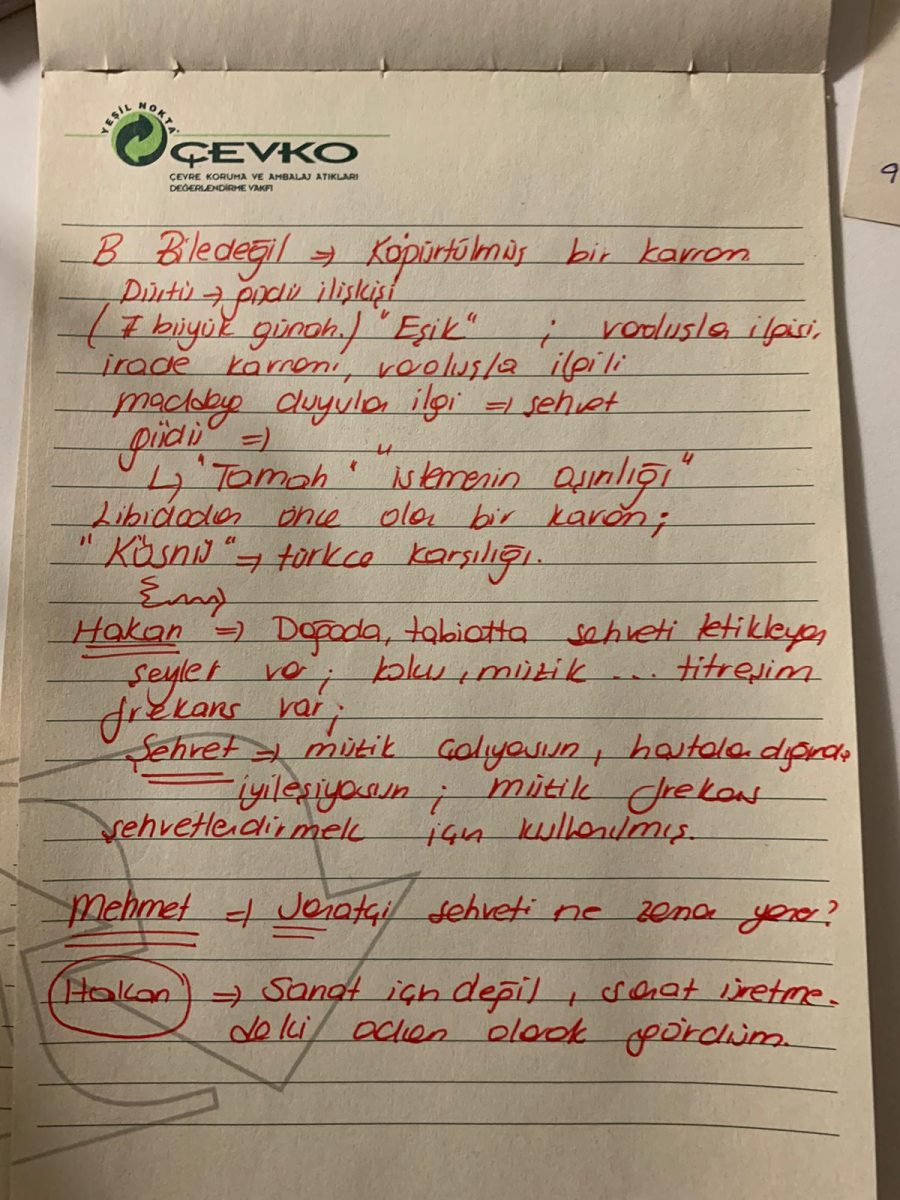 YEŞİL NOKTA
ÇEVKO
ÇEVRE KORUMA VE AMBALAJ ATIKLARI
DEĞERLENDİRME VAKFI
9
B Biledeğil => Köpürtülmüş bir kavram.
Dürtü -> güdü ilişkisi
(7 büyük günah.) "Eşik" ; varoluşla ilgisi,
irade kavramı, varoluşla ilgili
maddeye duyulan ilgi => şehvet
güdü =>
↳ "Tamah" "istemenin aşırılığı"
Libidodan önce olan bir kavram;
"Kösnü" => türkçe karşılığı.
Hakan => Doğada, tabiatta şehveti tetikleyen
şeyler var; koku, müzik ... titreşim
frekans var;
Şehvet => müzik çalıyosun, hastalandığında
iyileşiyosun ; müzik frekans
şehvetlendirmek için kullanılmış.
Mehmet => Sanatçı şehveti ne zaman yener?
Hakan => Sanat için değil, sanat üretme-
deki odien olarak gördüm.